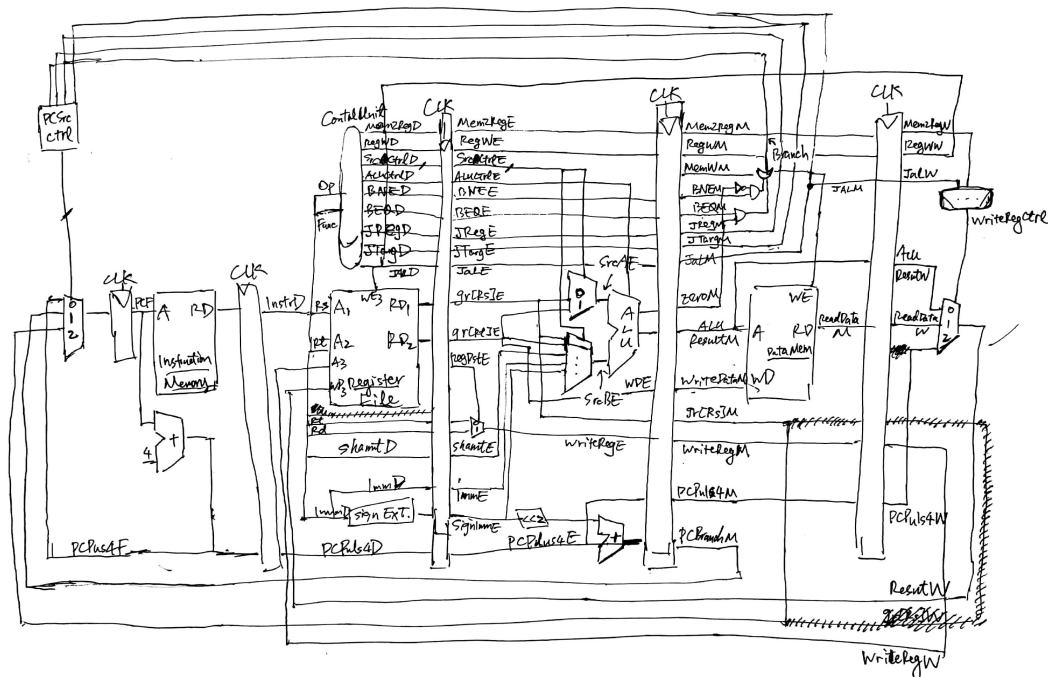 PCSrc
Ctrl
0
1
2
CLK
PCF
A RD
Instruction
Memory
4
+
PCPus4F
CLK
InstrD
Control Unit
Op
Func
Mem2RegD
RegWD
SrcCtrlD
AluCtrlD
BNED
BEQD
JRegD
JTargD
JALD
WE3
Rs
A1
RD1
Rt
A2
RD2
A3
WD3
Register
File
Rt
Rd
shamtD
ImmD
ImmD
Sign EXT.
PCPuls4D
CLK
Mem2RegE
RegWE
SrcCtrlE
AluCtrlE
BNEE
BEQE
JRegE
JTargE
JalE
gr[Rs]E
gr[Rt]E
RegDstE
0
1
shamtE
ImmE
SignImmE
<<2
PCPlus4E
+
0
1
SrcAE
SrcBE
ALU
WDE
WriteRegE
CLK
Mem2RegM
RegWM
MemWM
BNEM
BEQM
JRegM
JTargM
JalM
Branch
JALM
ZeroM
ALU
ResultM
WriteDataM
gr[Rs]M
WriteRegM
PCPuls4M
PCBranchM
WE
A RD
DataMem
WD
ReadData
M
CLK
Mem2RegW
RegWW
JalW
WriteRegCtrl
ALU
ResultW
ReadData
W
0
1
2
PCPuls4W
ResutW
WriteRegW